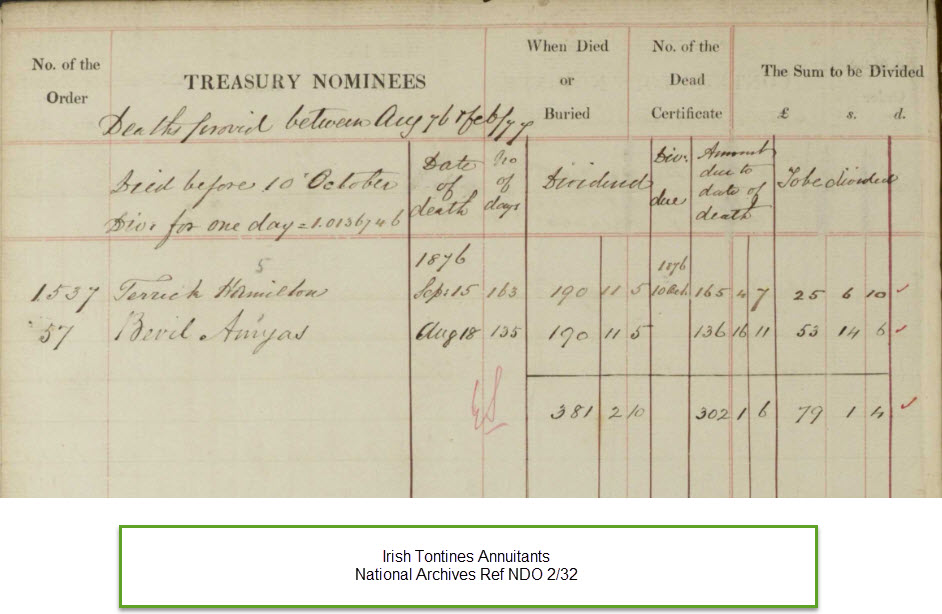 No. of the Order
TREASURY NOMINEES
When Died or Buried
No. of the Dead Certificate
The Sum to be Divided
£ s. d.
Deaths proved between Aug 76 & feb/77
Died before 10 October
Div. for one day = 1.0136746
Date of death
No of days
Dividend
Div. due
Amount due to date of death
To be divided
5
1876
1876
1.537 Terrick Hamilton Sep 15 163 190 11 5 10 Oct. 165 4 7 25 6 10
57 Bevil Amyas Aug 18 135 190 11 5 136 16 11 53 14 6
381 2 10 302 1 6 79 1 4
Irish Tontines Annuitants
National Archives Ref NDO 2/32